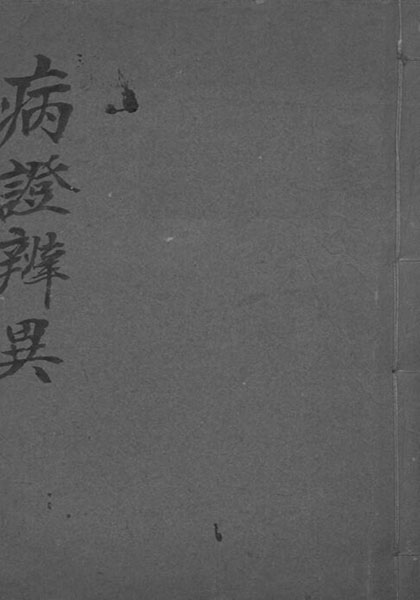 病證辨異